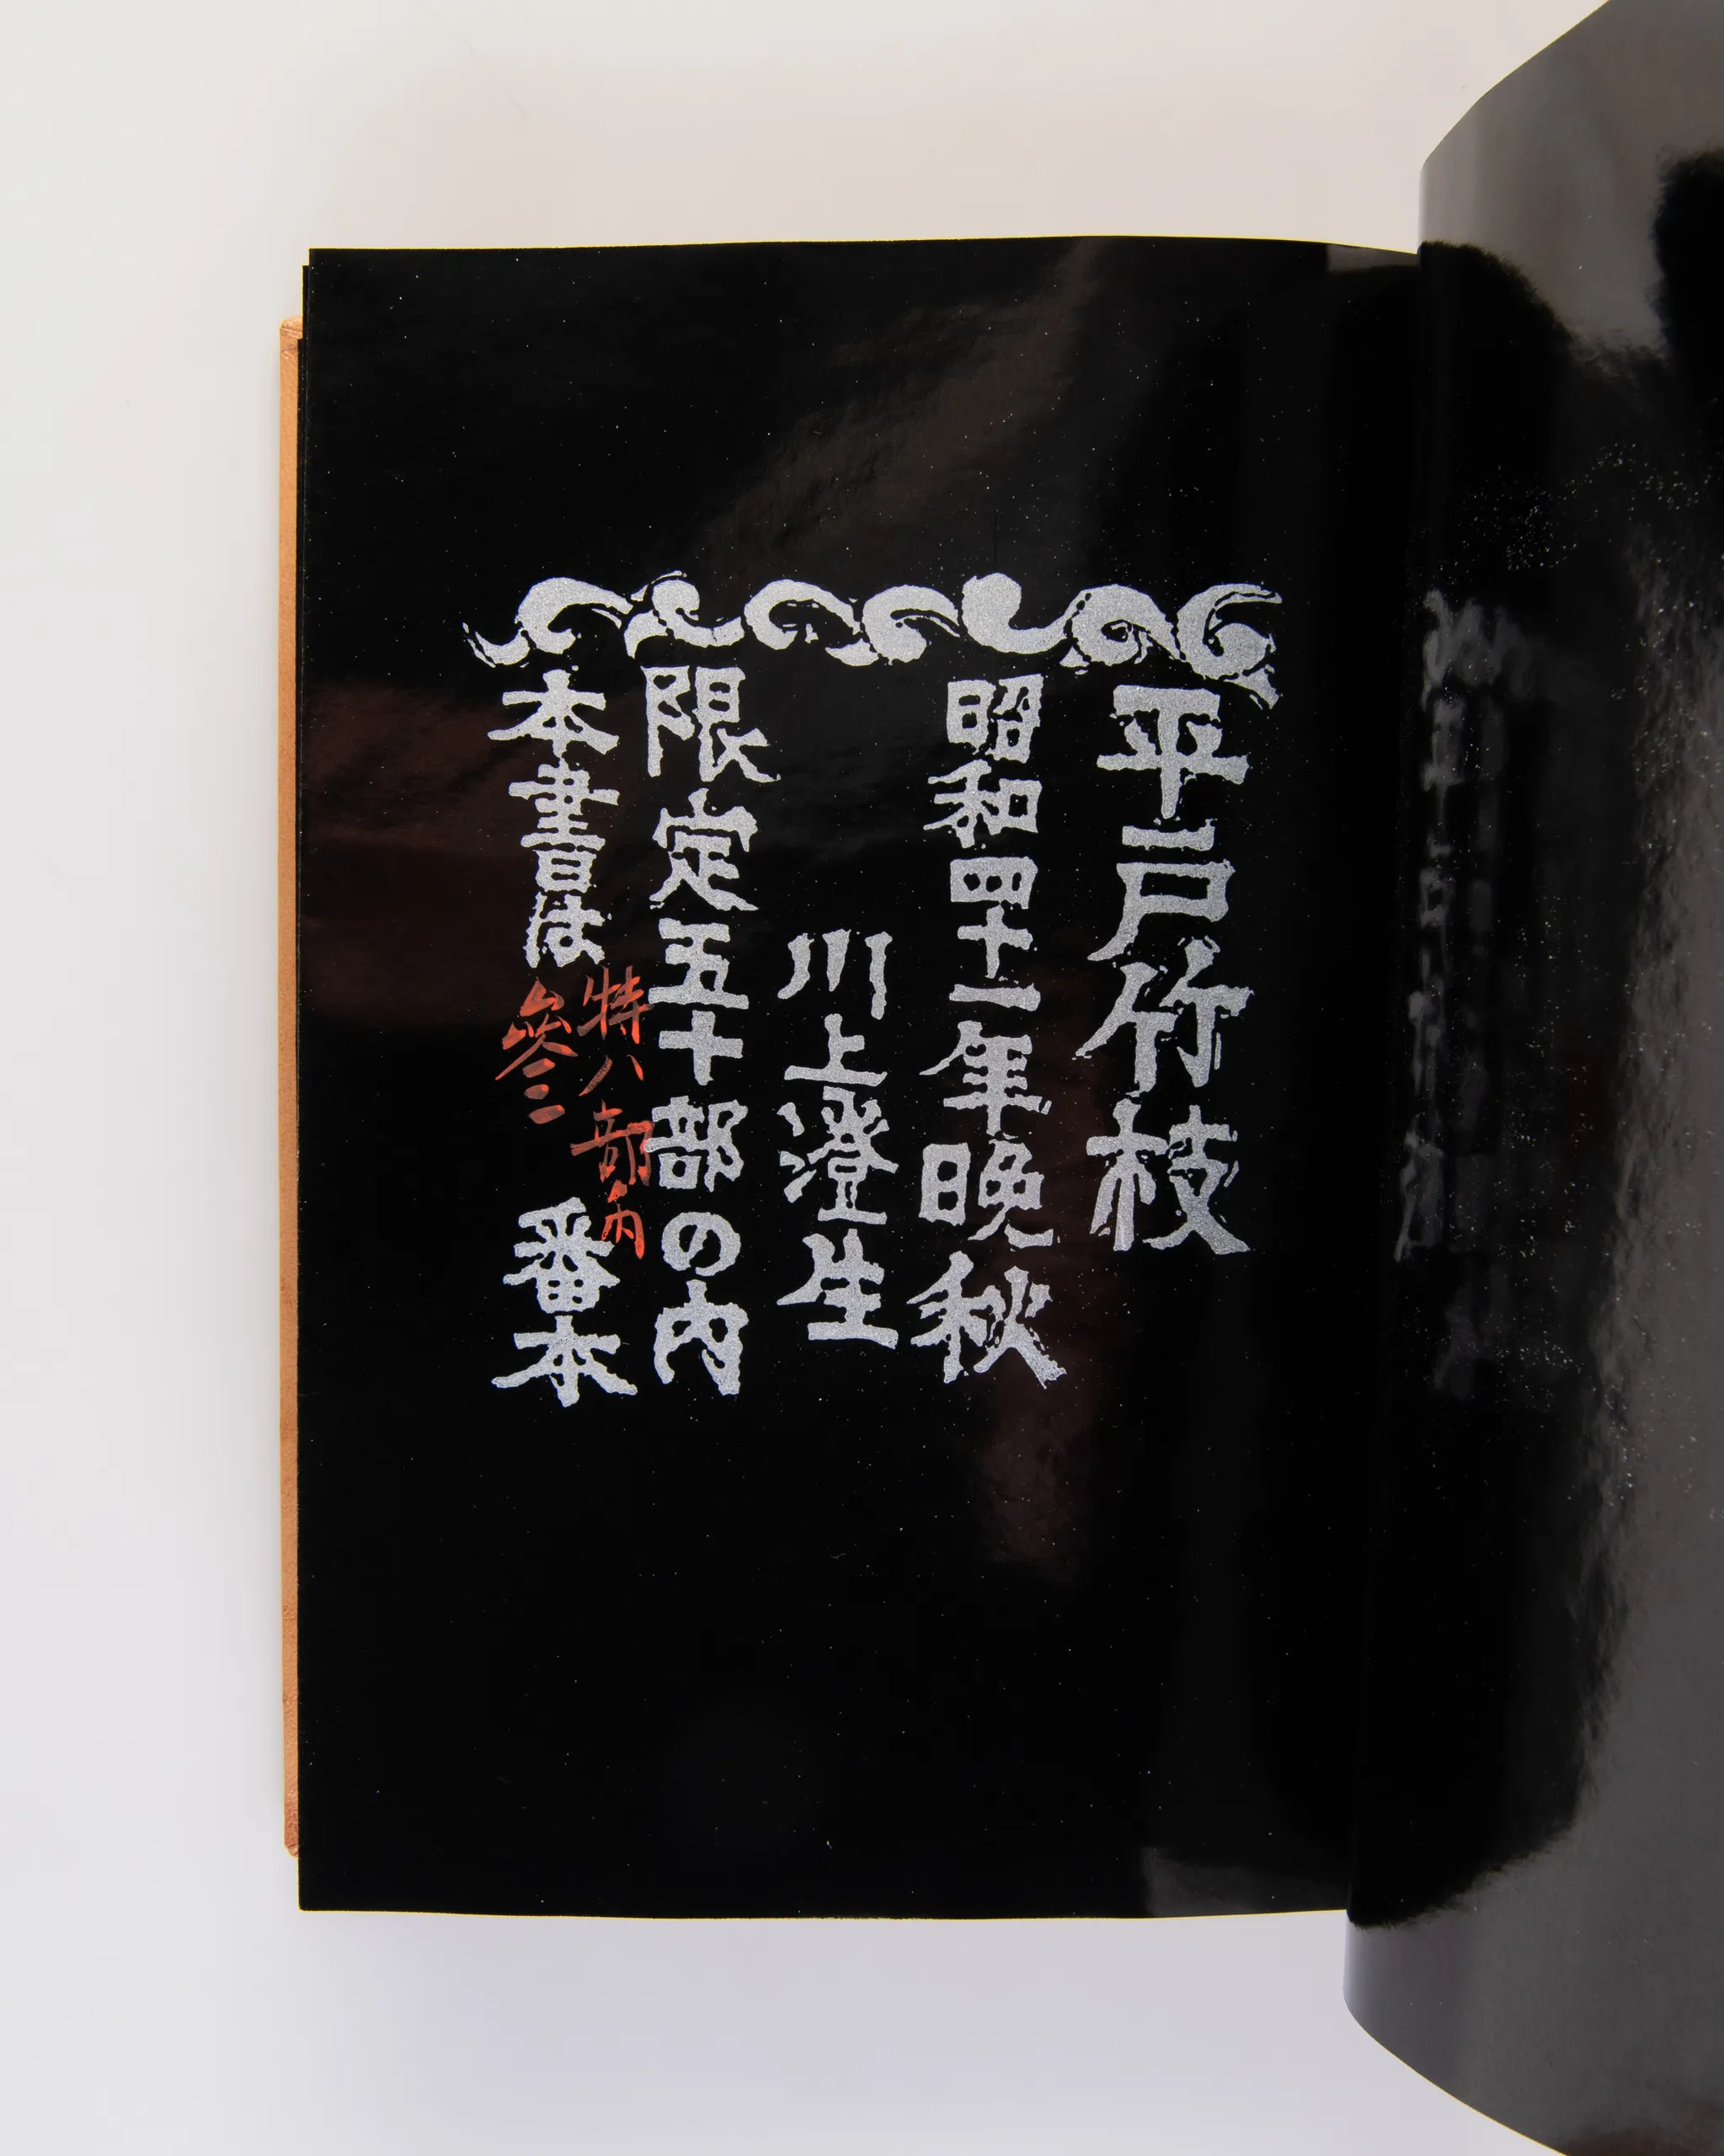 平戸竹枝
昭和四十一年晩秋
川上澄生
限定五十部の内
本書は
特八部内
参
番本